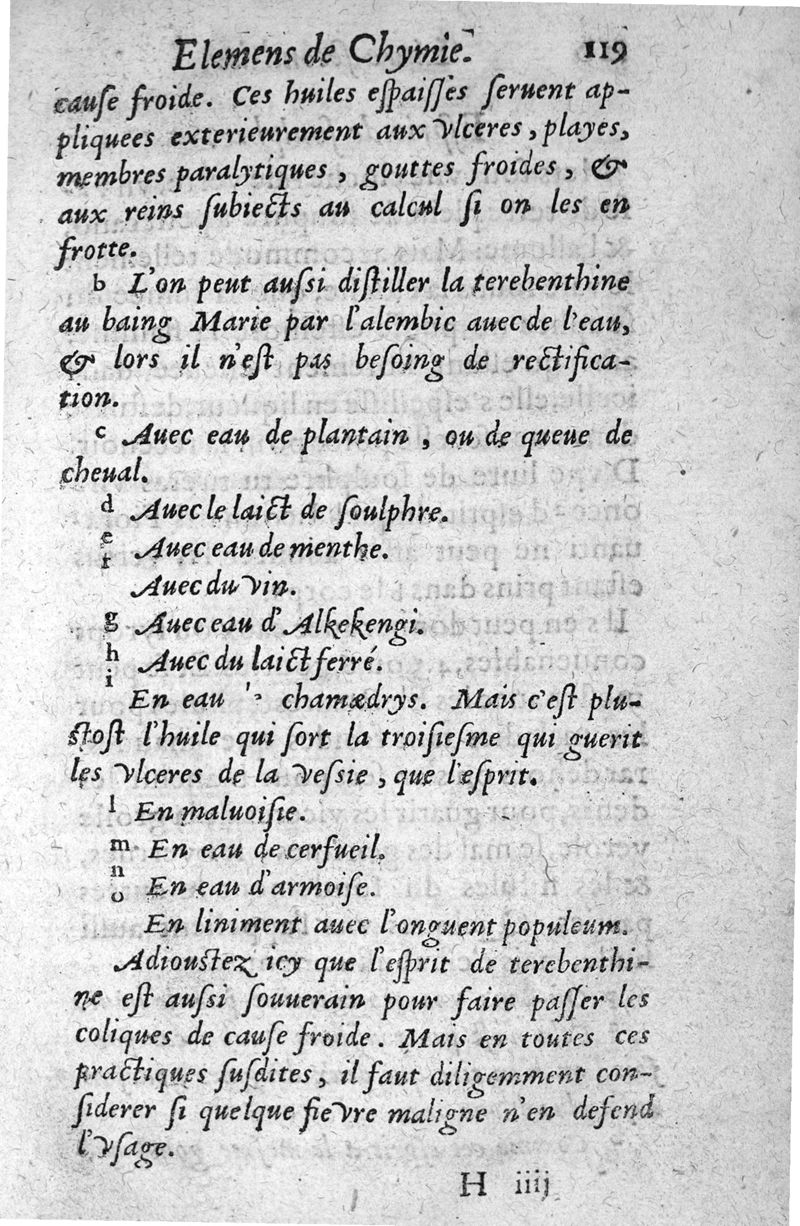 Elemens de Chymie. 119
cause froide. Ces huiles espaisses seruent ap-
pliquees exterieurement aux vlceres, playes,
membres paralytiques, gouttes froides, &
aux reins subiects au calcul si on les en
frotte.
b L'on peut aussi distiller la terebenthine
au baing Marie par l'alembic auec de l'eau,
& lors il n'est pas besoing de rectifica-
tion.
c Auec eau de plantain, ou de queue de
cheual.
d Auec le laict de soulphre.
e Auec eau de menthe.
f Auec du vin.
g Auec eau d'Alkekengi.
h Auec du laict ferré.
i En eau chamædrys. Mais c'est plu-
stost l'huile qui sort la troisiesme qui guerit
les vlceres de la vessie, que l'esprit.
l En maluoisie.
m En eau de cerfueil.
n En eau d'armoise.
o En liniment auec l'onguent populeum.
Adioustez icy que l'esprit de terebenthi-
ne est aussi souuerain pour faire passer les
coliques de cause froide. Mais en toutes ces
practiques susdites, il faut diligemment con-
siderer si quelque fievre maligne n'en defend
l'vsage.
H iiij